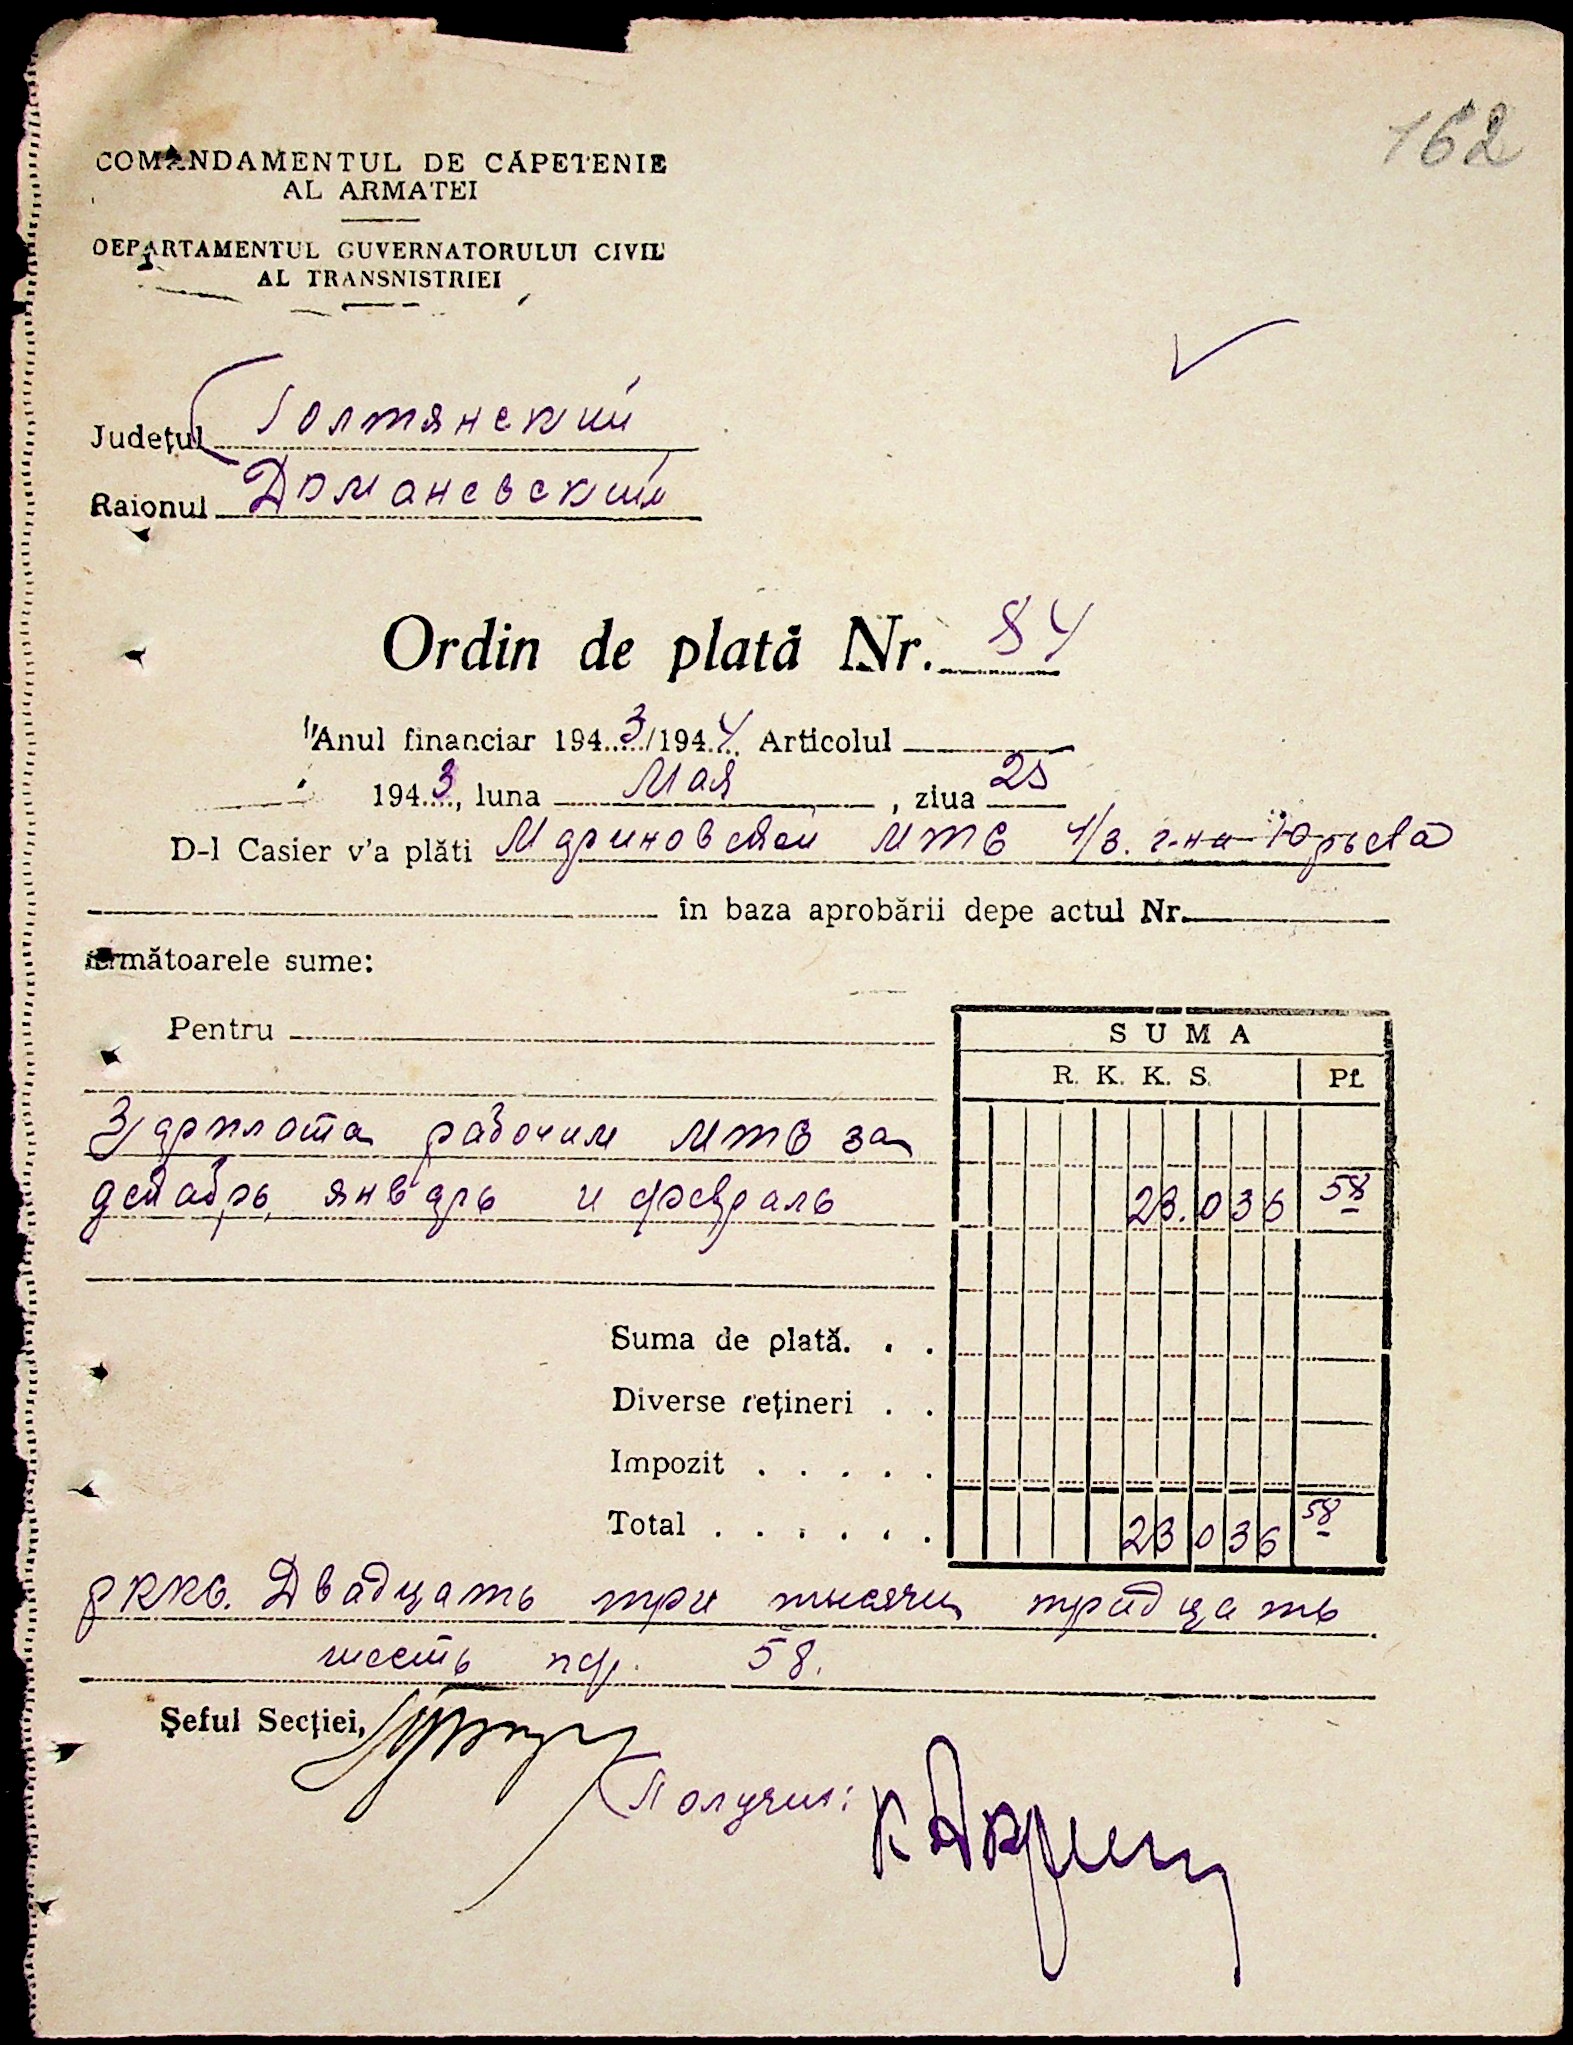 162
COMANDAMENTUL DE CĂPETENIE
AL ARMATEI
DEPARTAMENTUL GUVERNATORULUI CIVIL
AL TRANSNISTRIEI
Județul Голтянский
Raionul Доманевский
Ordin de plată Nr. 84
Anul financiar 1943/1944 Articolul
1943, luna Мая, ziua 25
D-l Casier v'a plăti Мариновской МТС ч/з. г-на Юрьева
în baza aprobării depe actul Nr.
următoarele sume:
Pentru
SUMA
R. K. K. S. Pf.
Зарплата рабочим МТС за
декабрь, январь и февраль 23.036 58
Suma de plată. . .
Diverse rețineri . .
Impozit . . . . .
Total . . . . . . 23 036 58
рккс. Двадцать три тысячи тридцать
шесть пф. 58.
Șeful Secției,
Получил: